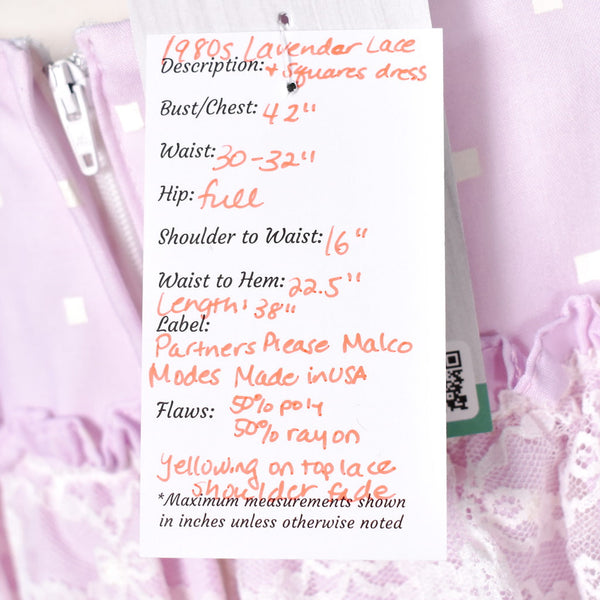 1980s Lavender Lace
Description: + squares dress
Bust/Chest: 42"
Waist: 30-32"
Hip: full
Shoulder to Waist: 16"
Waist to Hem: 22.5"
Length: 38"
Label:
Partners Please Malco
Modes Made in USA
Flaws: 50% poly
50% rayon
yellowing on top lace
shoulder fade
*Maximum measurements shown
in inches unless otherwise noted